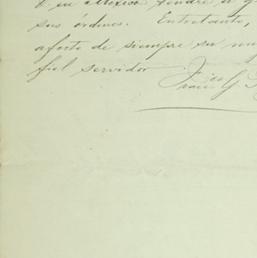 su México tendré a
sus órdenes. Entretanto,
afecto de siempre su
fiel servidor
Franco G